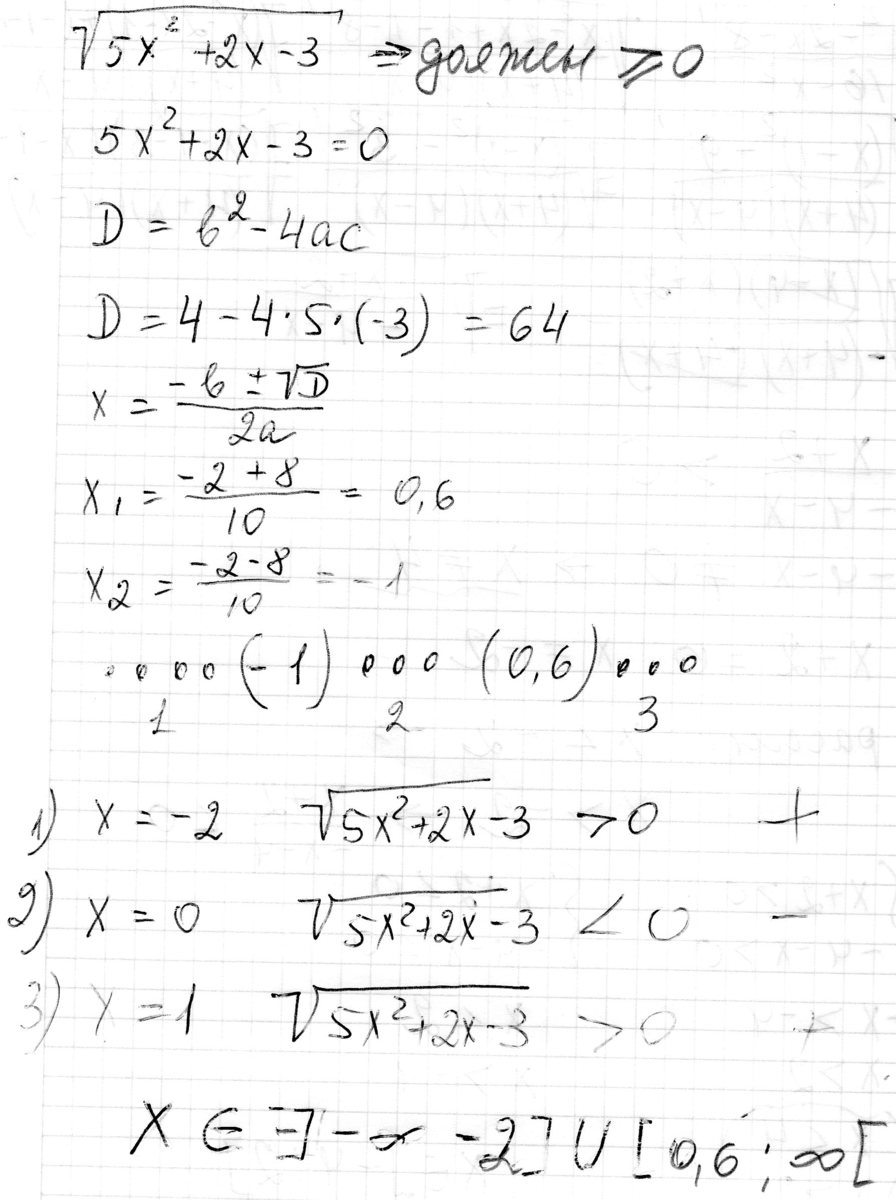 √5x² + 2x - 3 ⇒ должен ⩾ 0
5x² + 2x - 3 = 0
D = b² - 4ac
D = 4 - 4·5·(-3) = 64
x = (-b ± √D)/2a
x₁ = (-2 + 8)/10 = 0,6
x₂ = (-2 - 8)/10 = -1
.... (-1) ... (0,6) ...
1 2 3
1) x = -2 √5x² + 2x - 3 > 0 +
2) x = 0 √5x² + 2x - 3 < 0 -
3) x = 1 √5x² + 2x - 3 > 0 +
X ∈ ∃] -∞ -2] U [0,6 ; ∞[